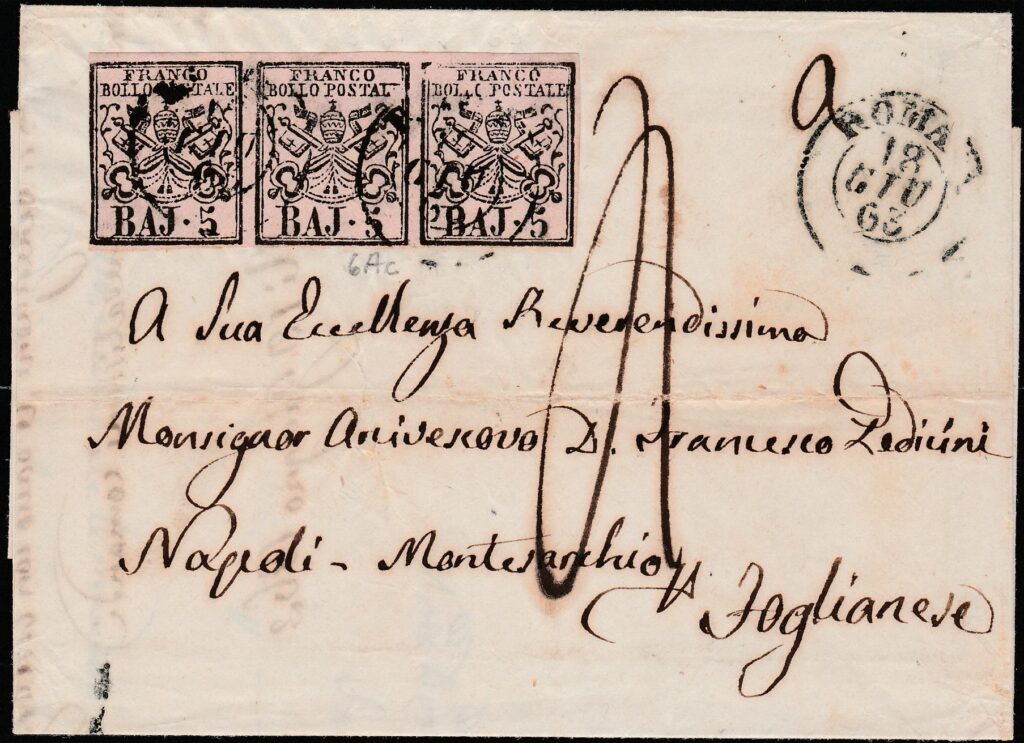 FRANCO
BOLLO POSTALE
BAJ. 5
FRANCO
BOLLO POSTAL
BAJ. 5
FRANCO
BOLLO POSTALE
BAJ. 5
ROMA
18
GIU
63
6Ac
A Sua Eccellenza Reverendissima
Monsignor Arcivescovo D. Francesco Pedicini
Napoli - Montesarchio
Foglianese